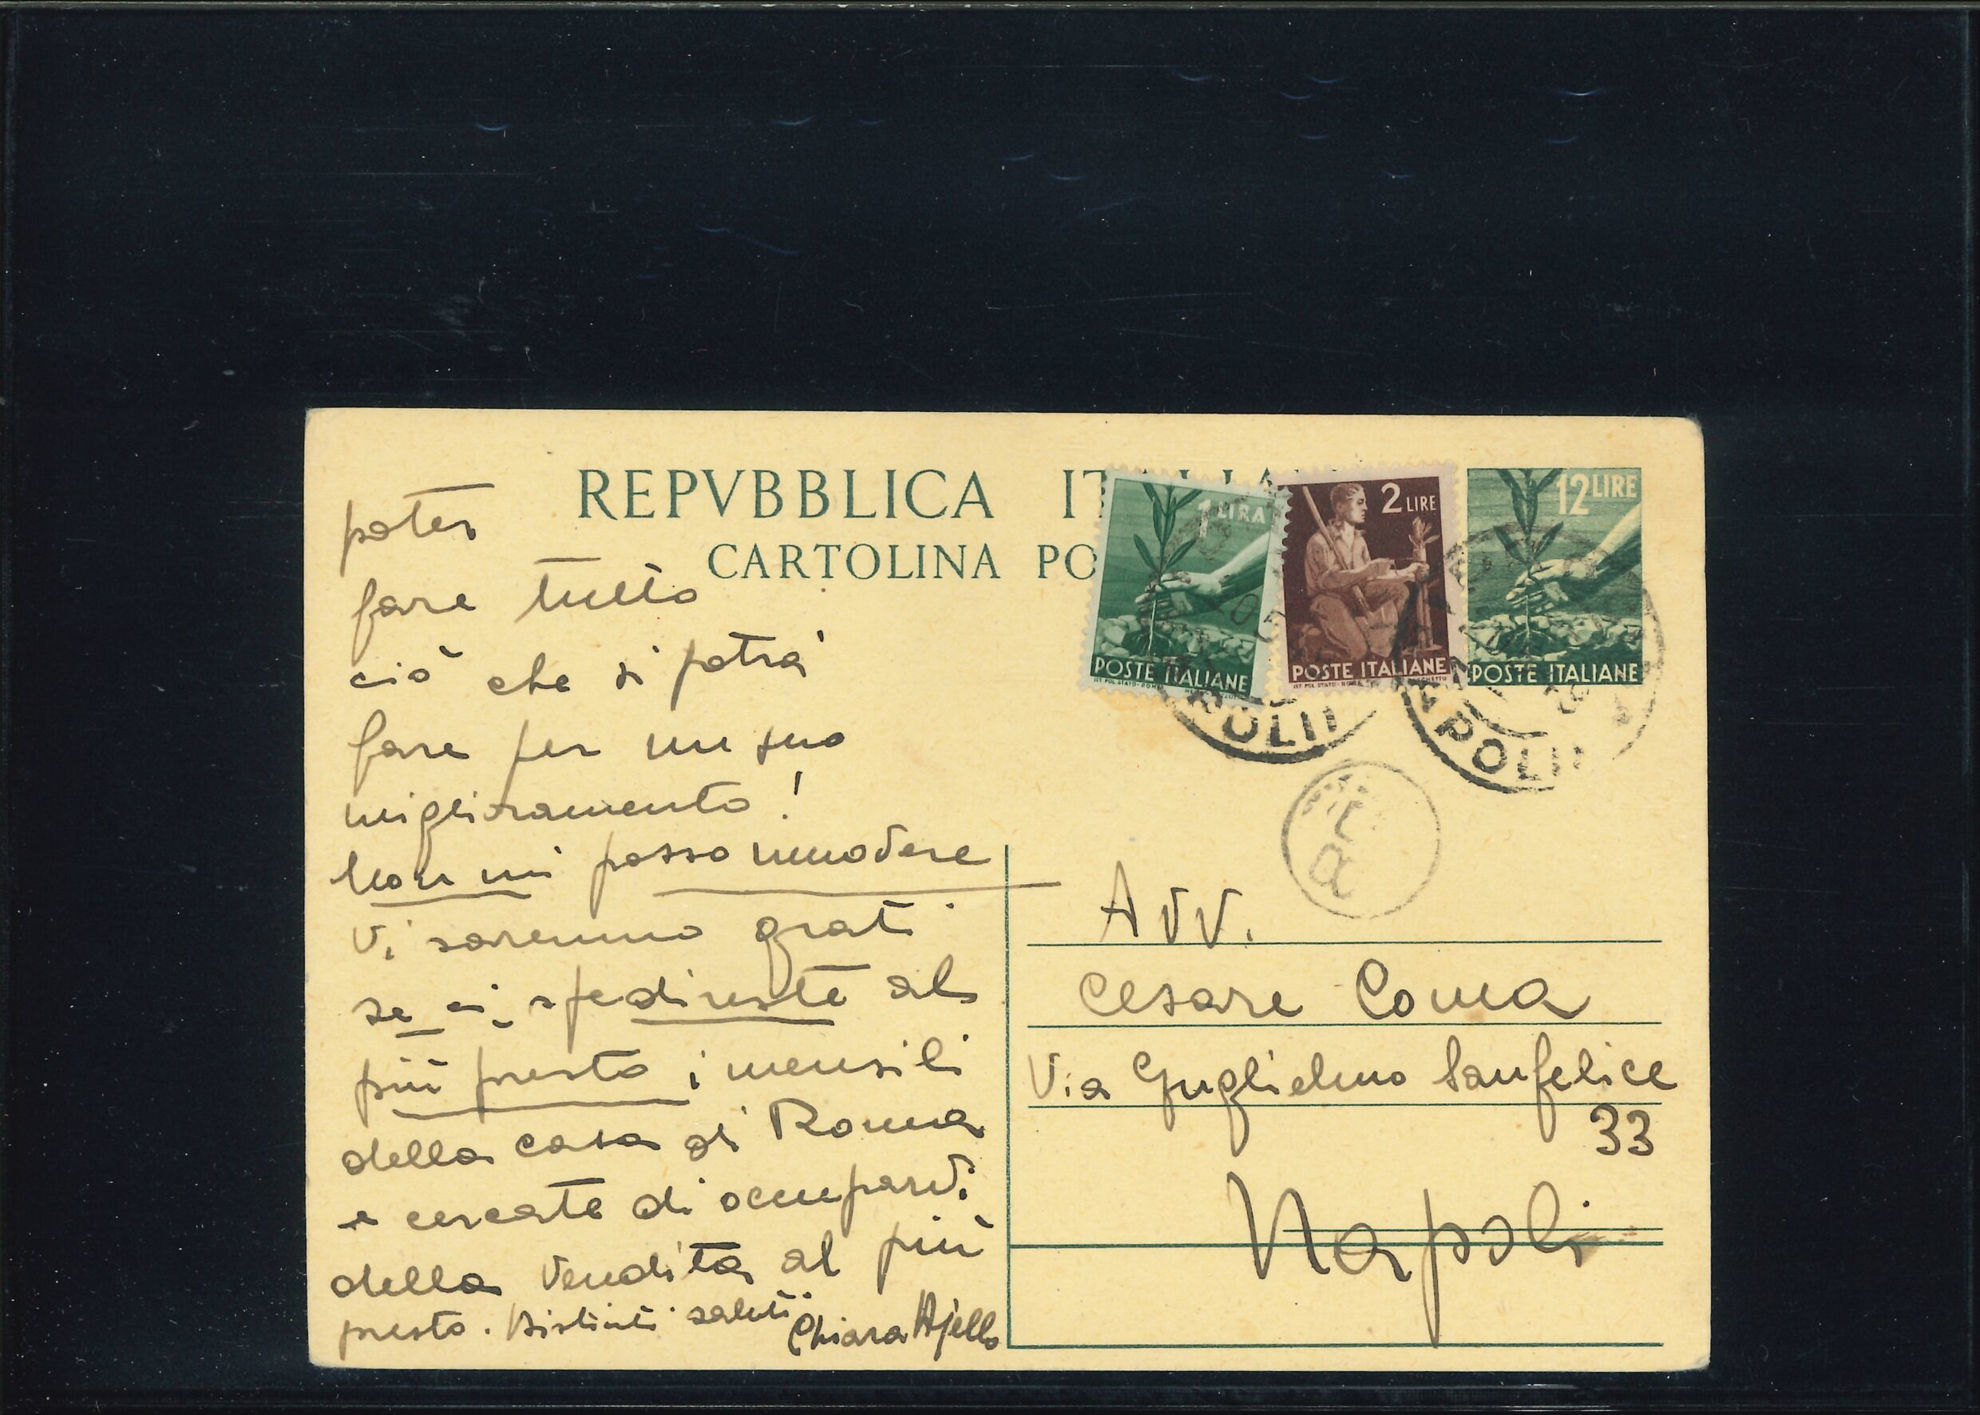 REPVBBLICA IT
CARTOLINA PO
1 LIRA
POSTE ITALIANE
2 LIRE
POSTE ITALIANE
12 LIRE
POSTE ITALIANE
NAPOLI
poter
fare tutto
ciò che si potrà
fare per un suo
miglioramento!
Non mi posso muovere
Vi saremmo grati
se ci spedireste al
più presto i mensili
della casa di Roma
e cercate di occuparvi
della vendita al più
presto. Distinti saluti
Chiara Ajello
Avv.
Cesare Coma
Via Guglielmo Sanfelice
33
Napoli